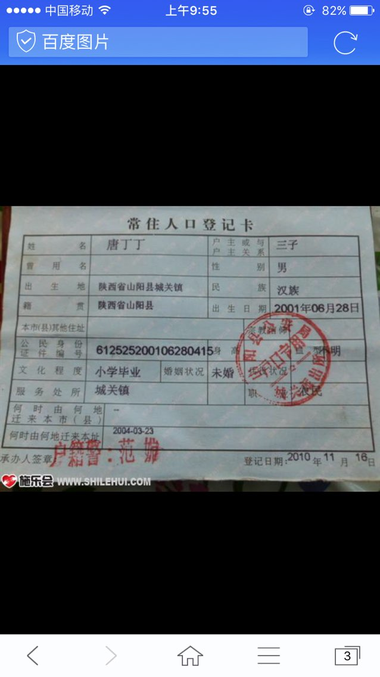 中国移动 上午9:55 82%
百度图片
常住人口登记卡
姓名 唐丁丁 户主或与户主关系 三子
曾用名 性别 男
出生地 陕西省山阳县城关镇 民族 汉族
籍贯 陕西省山阳县 出生日期 2001年06月28日
本市(县)其他住址
公民身份证件编号 612525200106280415 身 不明
文化程度 小学毕业 婚姻状况 未婚
服务处所 城关镇 职 农民
何时由何地迁来本市(县) --
何时由何地迁来本址 2004-03-23
户籍警:范
承办人签章 登记日期:2010年11月16日
施乐会 WWW.SHILEHUI.COM
3